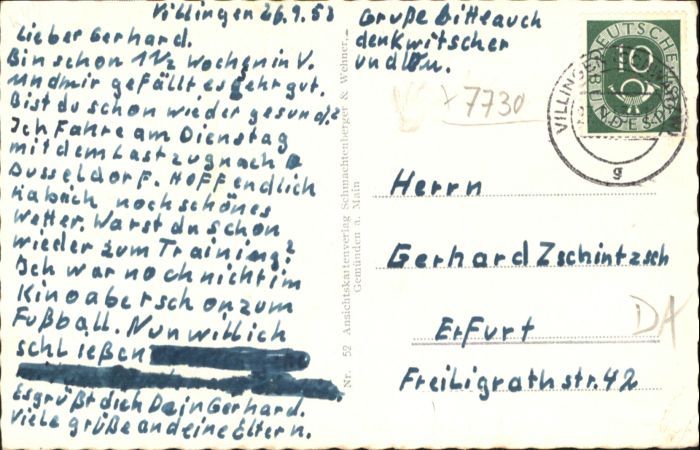 Villingen 26.9.53
Lieber Gerhard.
Bin schon 1 1/2 Wochen in V.
und mir gefällt es gehr gut.
Bist du schon wieder gesund?
Ich Fahre am Dienstag
mit dem Lastzug nach
Dusseldorf. Hoff endlich
hab ich noch schönes
Wetter. Warst du schon
wieder zum Training?
Ich war noch nicht im
Kino aber schon zum
Fußball. Nun will ich
schließen
Es grüßt dich Dein Gerhard.
Viele grüße an deine Eltern.
Gruße Bitte auch
den Kwitscher
und
7730
DEUTSCHE
10
BUNDESPOST
VILLINGEN
g
Herrn
Gerhard Zschintzsch
Erfurt
Freiligrathstr. 42
DA
Nr. 52 Ansichtskartenverlag Schmachtenberger & Wehner,
Gemünden a. Main